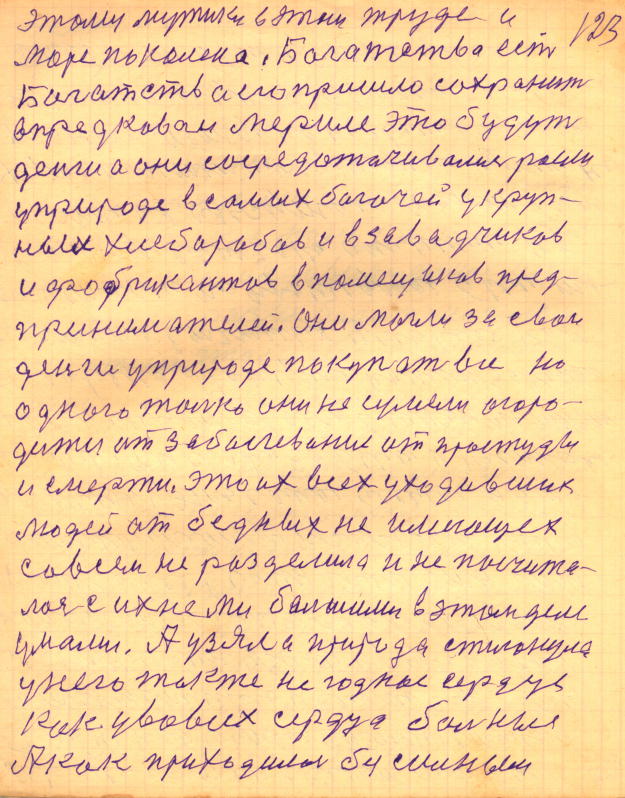 123
этому мужики в этом труде и
море по колена. Богатства ест
Богатства его пришло сохранит
впредкован мериле это будут
денги а они сосредотачивалис росли
уприроде в самых богачей укруп-
ных хлеборобов и взавадчиков
и фобрикантов впомещиков пред-
принимателей. Они могли за свои
денги уприроде покупат все но
одного толко они не сумели огоро-
дитси от заболевание от простуды
и смерти. это их всех уходивших
людей от бедных не имеющех
совсем не разделила и не посчита-
лос с ихнеми болшими в этом деле
умами. А узяла природа столкнула
унего токже негодное сердце
как увовсех сердца болные
А как приходилос бы силным